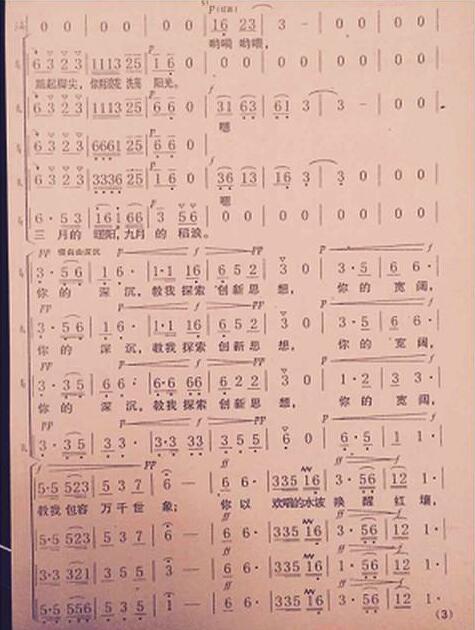 P
0 0 | 0 0 | 0 0 | 0 0 | 16 23 | 3 – | 0 0 | 0 0
哟嗬 哟嗬,
6 3 2 3 | 1113 25 | 1 6 0 | 0 0 | 0 0 | 0 0 | 0 0
踮起脚尖, 阳光。
6 3 2 3 | 1113 25 | 6 6 0 | 31 63 | 61 3 | 3 – | 0 0
嗯
6 3 2 3 | 6661 25 | 6 6 0
6 3 2 3 | 3336 25 | 6 6 0 | 36 13 | 16 3 | 3 0 | 0 0
嗯
6· 53 | 161 66 | 3 56 | 0 0 | 0 0 | 0 0 | 0 0
三 月的 骄阳, 九月 的 稻浪。
3· 56 | 1 6· | 1·1 16 | 6 5 2 | 3 0 | 3· 5 | 6 6·
你 的 深 沉, 教我 探索 创新 思 想, 你 的 宽 阔,
3· 56 | 1 6· | 1·1 16 | 6 5 2 | 3 0 | 3· 5 | 6 6·
你 的 深 沉, 教我 探索 创新 思 想, 你 的 宽 阔,
3· 35 | 6 6· | 6·6 66 | 6 2 2 | 3 0 | 1· 2 | 3 3·
你 的 深 沉, 教我 探索 创新 思 想, 你 的 宽 阔,
3· 35 | 3 3· | 3·3 33 | 3 5 5 | 6 0 | 6· 5 | 1 1·
5·5 523 | 5 3 7 | 6 — | 6 6· | 335 16 | 3· 56 | 12 1·
教我 包容 万千 世 象; 你 以 欢唱的水波 唤 醒 红 墙,
5·5 523 | 5 3 7 | 6 — | 6 6· | 335 16 | 3· 56 | 12 1·
3·3 321 | 3 5 5 | 3 — | 6 6· | 335 16 | 3· 56 | 12 1·
5·5 556 | 5 3 5 | 1 — | 6 6· | 335 16 | 3· 56 | 12 1·
(3)